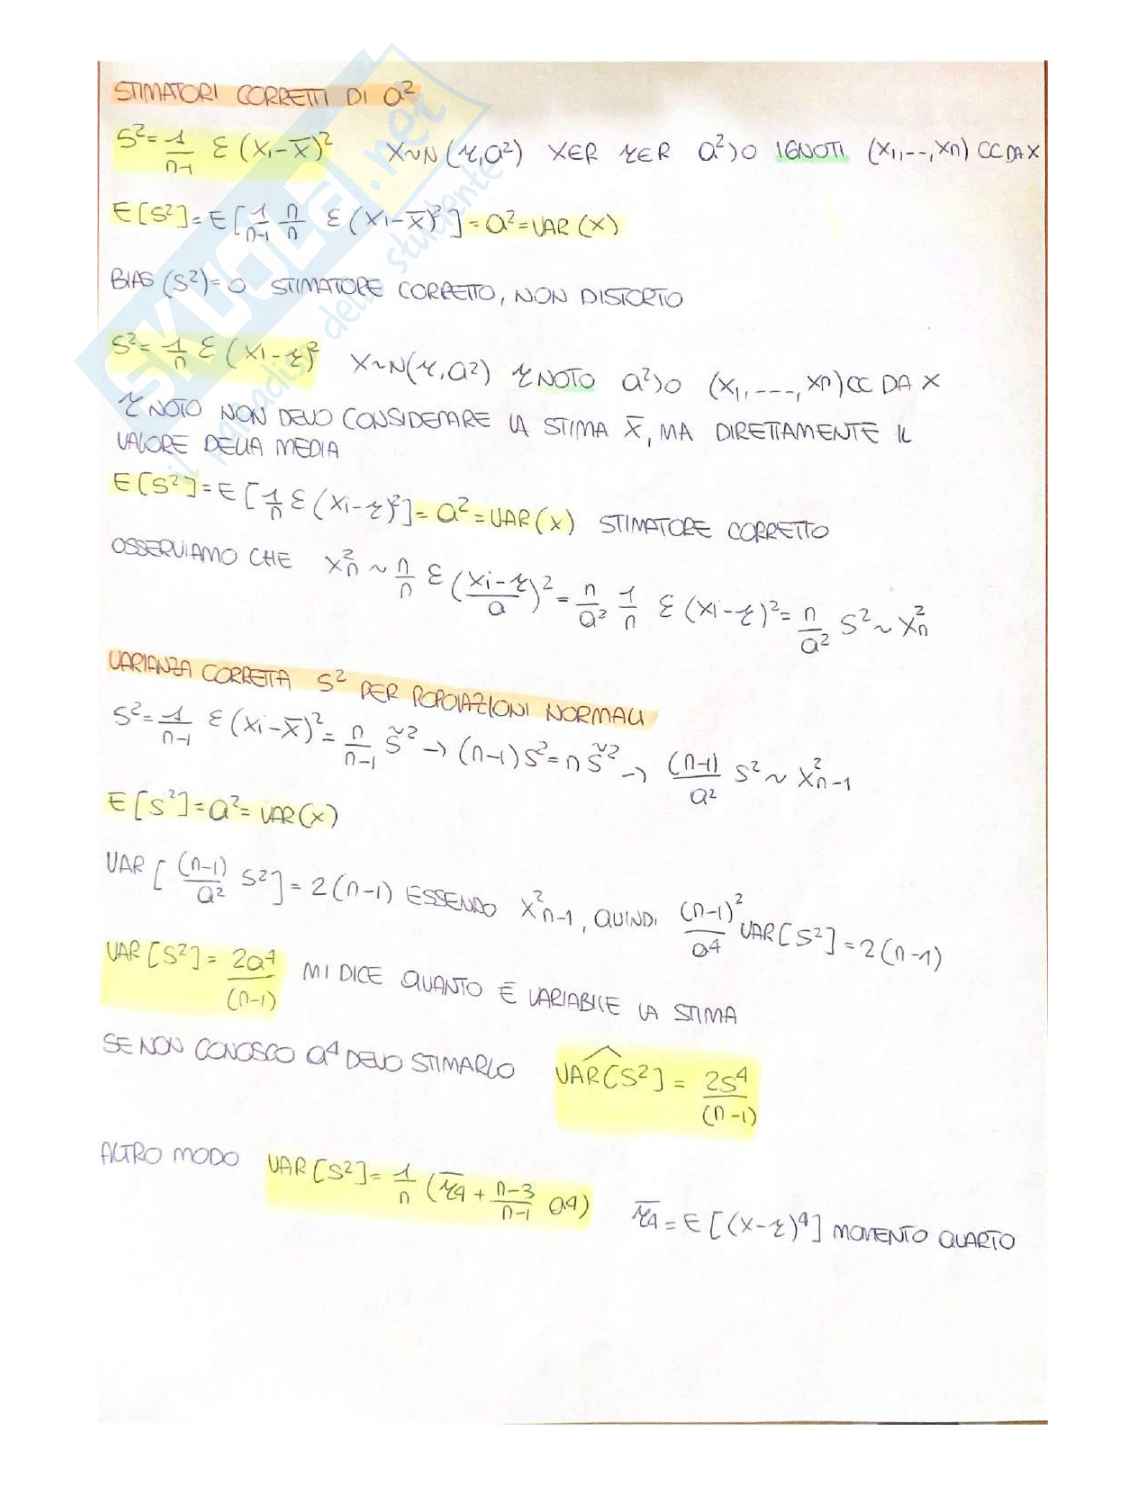 STIMATORI CORRETTI DI σ²
S² = 1/(n-1) Σ (xi - x̄)² X~N(μ, σ²) X∈R μ∈R σ²>0 IGNOTI (x1, --, xn) CC DA X
E[S²] = E[1/(n-1) n/n Σ (xi - x̄)²] = σ² = VAR(X)
BIAS (S²) = 0 STIMATORE CORRETTO, NON DISTORTO
S² = 1/n Σ (xi - μ)² X~N(μ, σ²) μ NOTO σ²>0 (x1, ---, xn) CC DA X
μ NOTO NON DEVO CONSIDERARE LA STIMA x̄, MA DIRETTAMENTE IL
VALORE DELLA MEDIA
E[S²] = E[1/n Σ (xi - μ)²] = σ² = VAR(X) STIMATORE CORRETTO
OSSERVIAMO CHE X²n ~ n/n Σ ((xi - μ)/σ)² = n/σ² 1/n Σ (xi - μ)² = n/σ² S² ~ X²n
VARIANZA CORRETTA S² PER POPOLAZIONI NORMALI
S² = 1/(n-1) Σ (xi - x̄)² = n/(n-1) S̃² → (n-1)S² = n S̃² → (n-1)/σ² S² ~ X²n-1
E[S²] = σ² = VAR(X)
VAR [(n-1)/σ² S²] = 2(n-1) ESSENDO X²n-1, QUINDI (n-1)²/σ⁴ VAR[S²] = 2(n-1)
VAR[S²] = 2σ⁴/(n-1) MI DICE QUANTO È VARIABILE LA STIMA
SE NON CONOSCO σ⁴ DEVO STIMARLO VAR̂[S²] = 2S⁴/(n-1)
ALTRO MODO VAR[S²] = 1/n (μ̄4 + (n-3)/(n-1) σ⁴) μ̄4 = E[(X - μ)⁴] MOMENTO QUARTO
SKUOLA.net
il paradiso dello studente